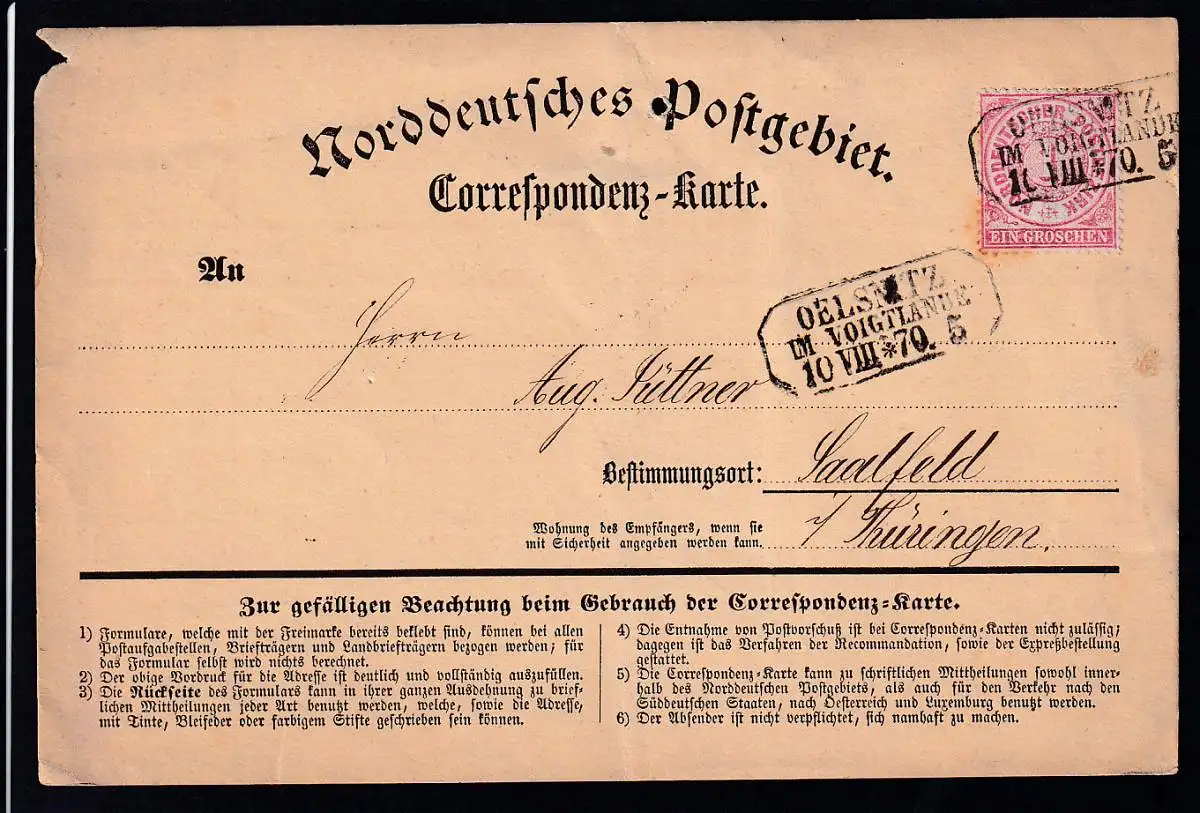 Norddeutsches Postgebiet.
Correspondenz-Karte.
NORDDEUTSCHER POSTBEZIRK
1
EIN GROSCHEN
IM VOIGTLANDE
VIII * 70. 5
An
Herrn
OELSNITZ
IM VOIGTLANDE
10 VIII * 70. 5
Aug. Züttner
Bestimmungsort: Saalfeld
Wohnung des Empfängers, wenn sie
mit Sicherheit angegeben werden kann.
i/ Thüringen.
Zur gefälligen Beachtung beim Gebrauch der Correspondenz-Karte.
1) Formulare, welche mit der Freimarke bereits beklebt sind, können bei allen
Postaufgabestellen, Briefträgern und Landbriefträgern bezogen werden; für
das Formular selbst wird nichts berechnet.
2) Der obige Vordruck für die Adresse ist deutlich und vollständig auszufüllen.
3) Die Rückseite des Formulars kann in ihrer ganzen Ausdehnung zu brief-
lichen Mittheilungen jeder Art benutzt werden, welche, sowie die Adresse,
mit Tinte, Bleifeder oder farbigem Stifte geschrieben sein können.
4) Die Entnahme von Postvorschuß ist bei Correspondenz-Karten nicht zulässig;
dagegen ist das Verfahren der Recommandation, sowie der Expreßbestellung
gestattet.
5) Die Correspondenz-Karte kann zu schriftlichen Mittheilungen sowohl inner-
halb des Norddeutschen Postgebiets, als auch für den Verkehr nach den
Süddeutschen Staaten, nach Oesterreich und Luxemburg benutzt werden.
6) Der Absender ist nicht verpflichtet, sich namhaft zu machen.